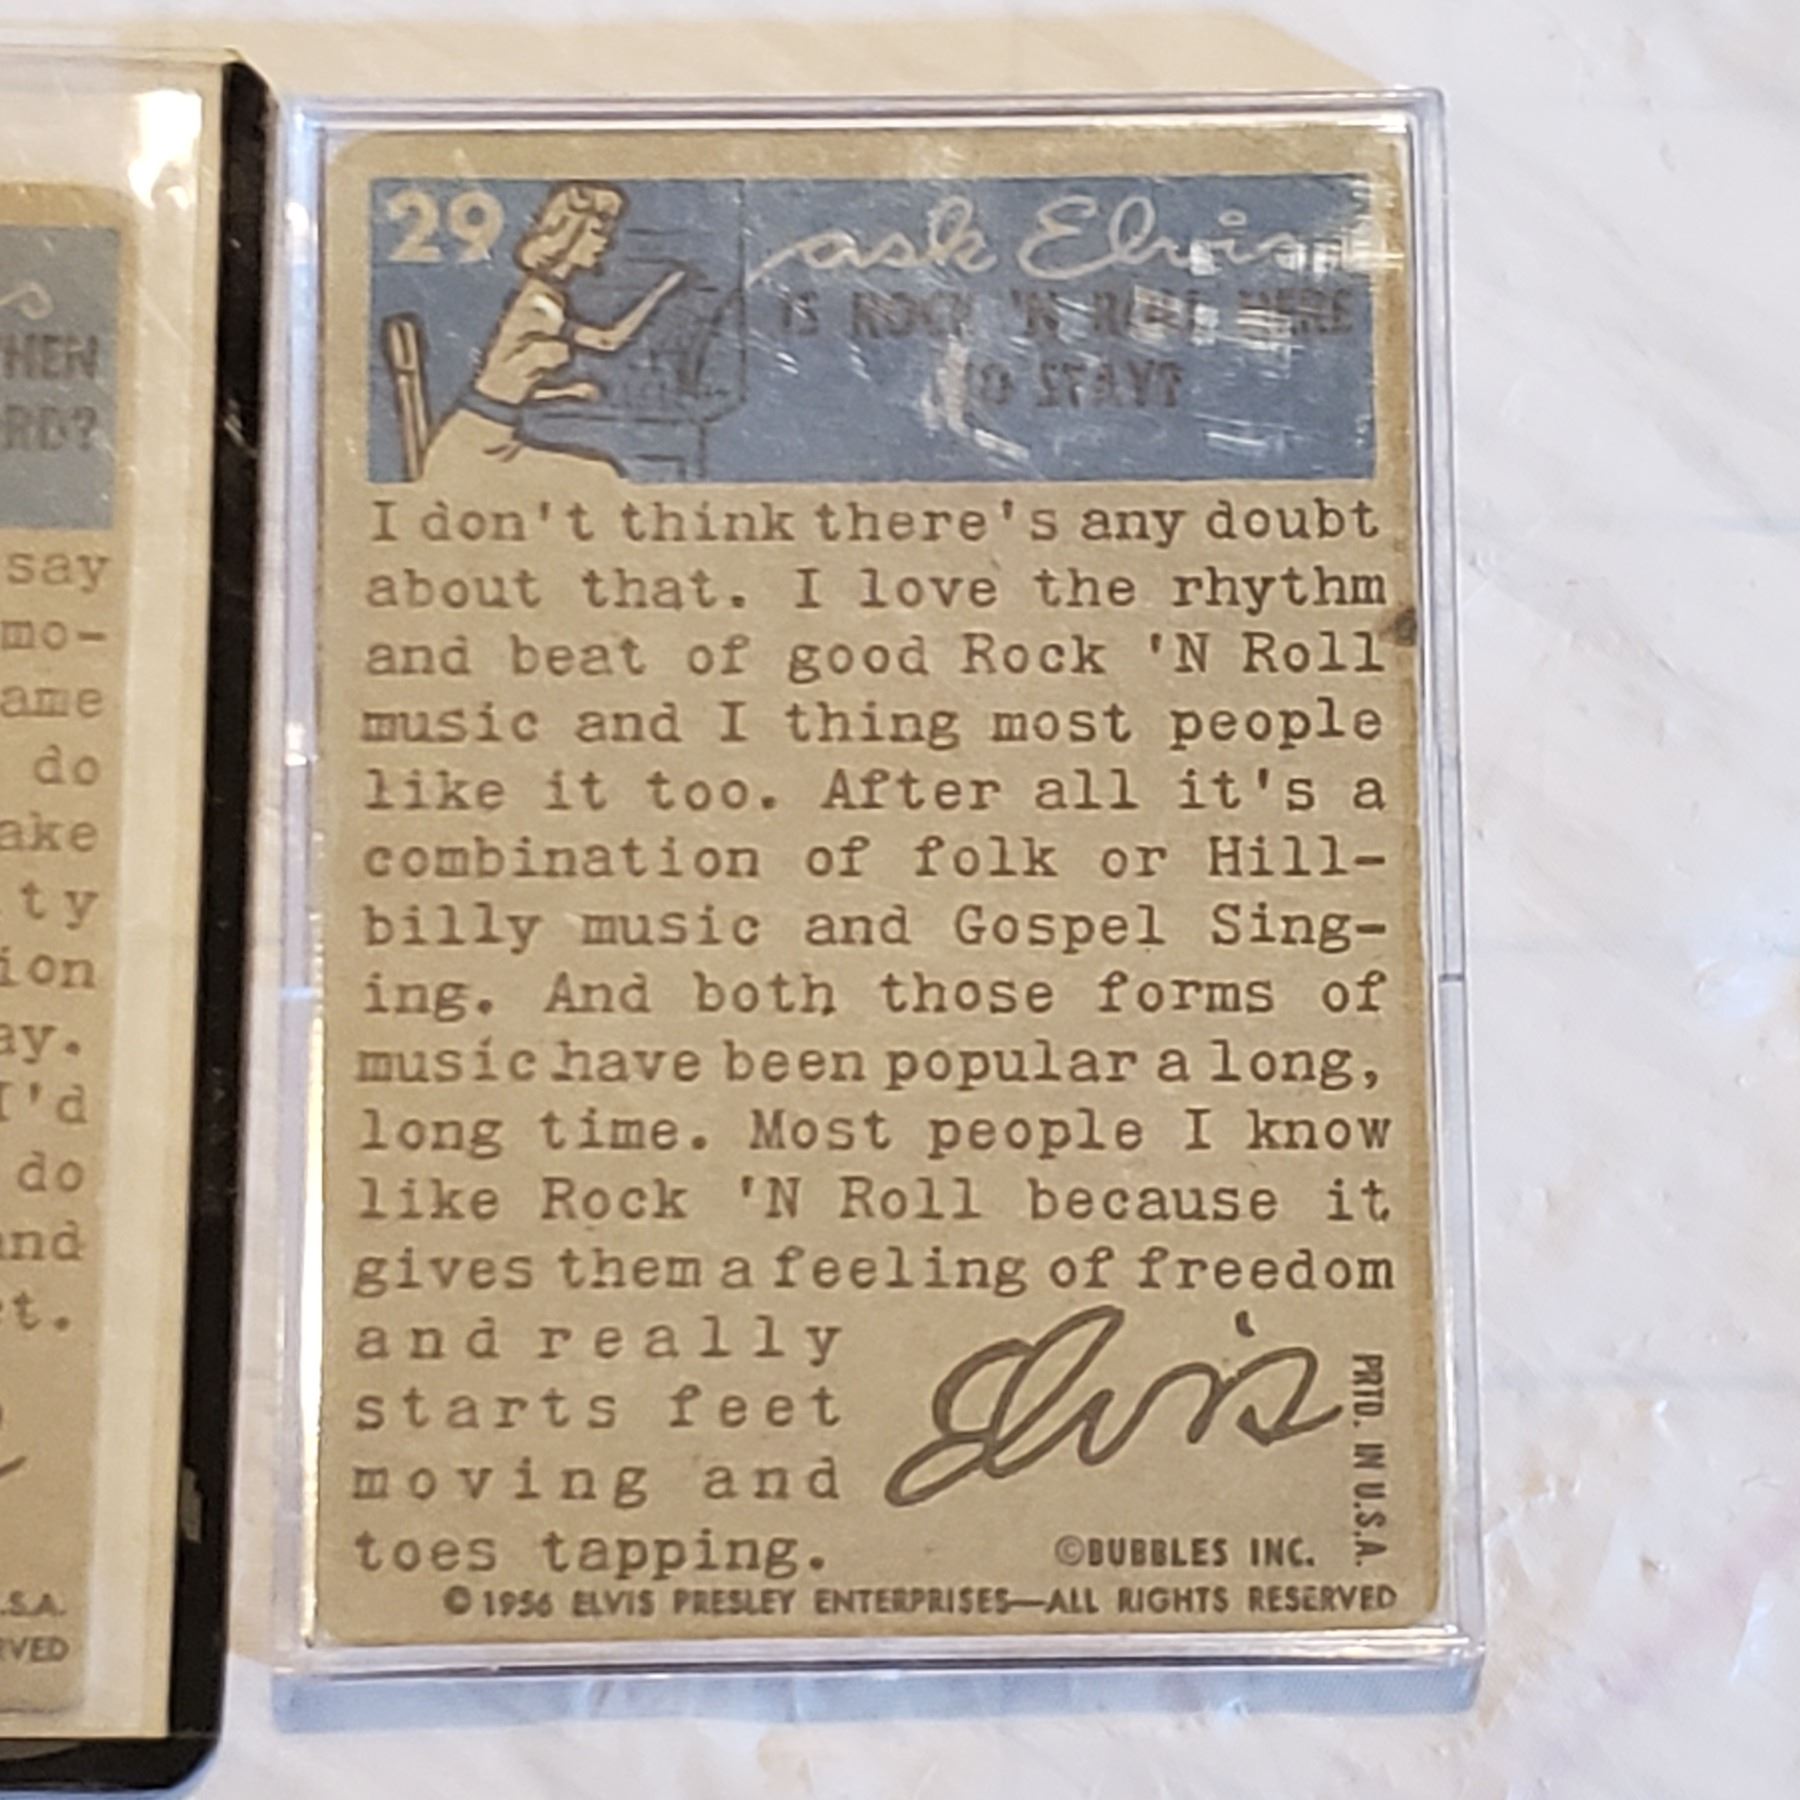 HEN
RD?
say
mo-
ame
do
ake
ty
ion
ay.
I'd
do
and
t.
.S.A.
RVED
29
ask Elvis
IS ROCK 'N ROLL HERE
TO STAY?
I don't think there's any doubt
about that. I love the rhythm
and beat of good Rock 'N Roll
music and I thing most people
like it too. After all it's a
combination of folk or Hill-
billy music and Gospel Sing-
ing. And both those forms of
music have been popular a long,
long time. Most people I know
like Rock 'N Roll because it
gives them a feeling of freedom
and really
starts feet
moving and
toes tapping.
Elvis
PRTD. IN U.S.A.
©BUBBLES INC.
© 1956 ELVIS PRESLEY ENTERPRISES—ALL RIGHTS RESERVED